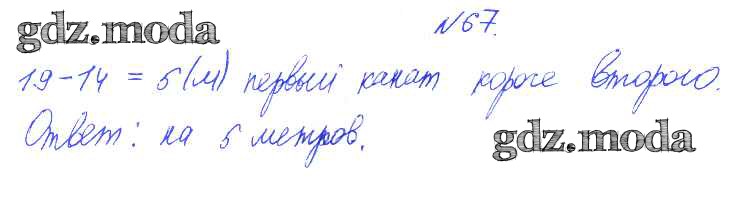 gdz.moda
№67.
19-14 = 5(м) первый канат короче второго.
Ответ: на 5 метров.
gdz.moda